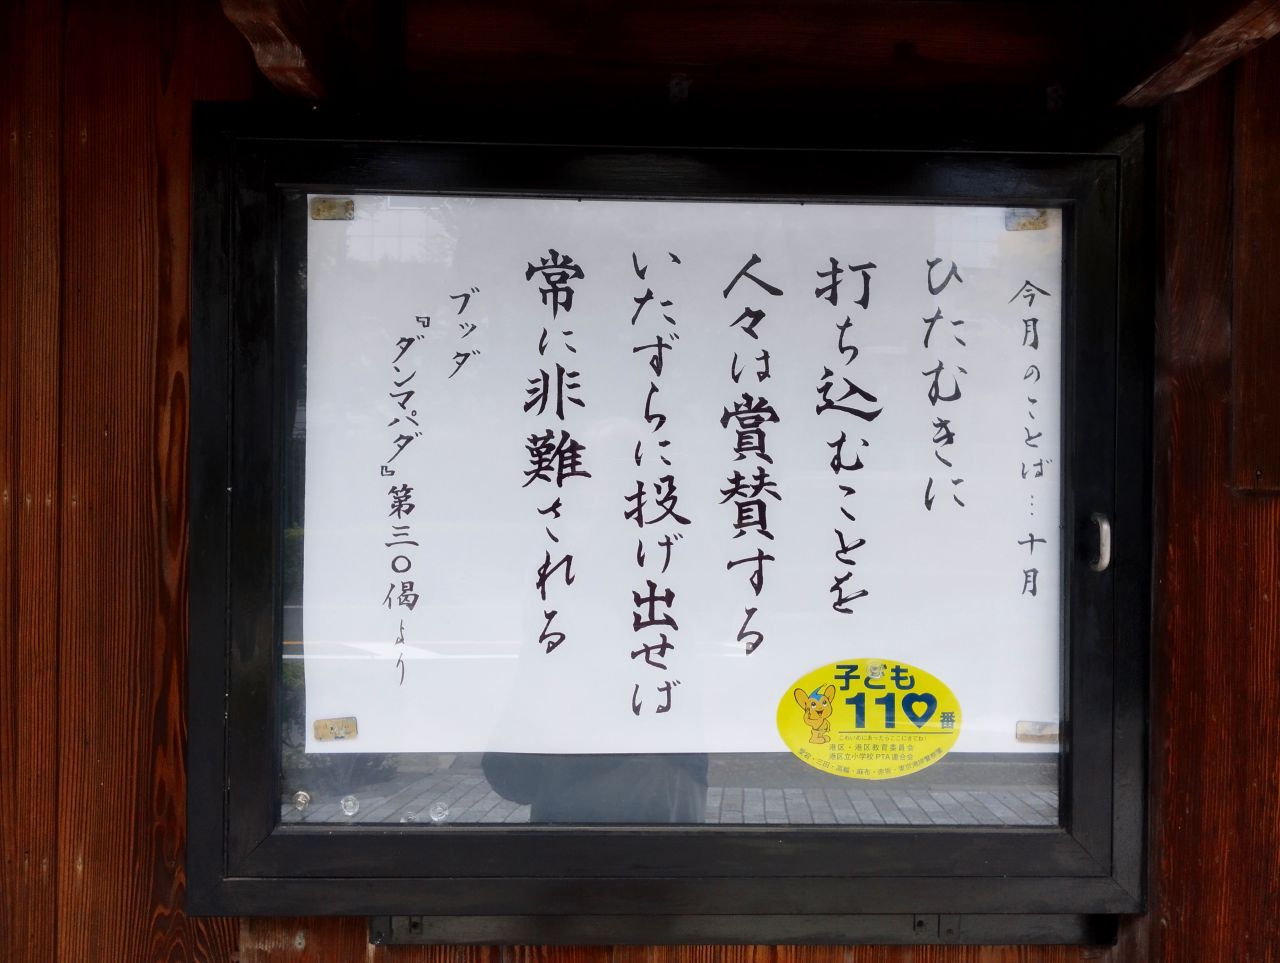 今月のことば…十月
ひたむきに
打ち込むことを
人々は賞賛する
いたずらに投げ出せば
常に非難される
ブッダ
『ダンマパダ』第三〇偈より
子ども
110番
こわいめにあったらここにきてね!
港区・港区教育委員会
港区立小学校PTA連合会
愛宕・三田・高輪・麻布・赤坂・東京湾岸警察署